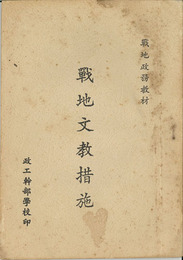 戰地政務教材
戰地文教措施
政工幹部學校印